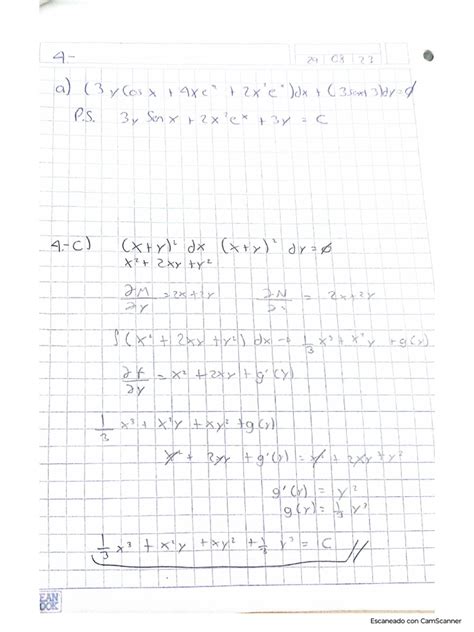 4-
24 08 23
a) (3yCosx + 4xeˣ + 2x²eˣ)dx + (3senx+3)dy=0
P.S. 3y Senx + 2x²eˣ + 3y = C
4-C) (x+y)² dx (x+y)² dy=0
x² + 2xy + y²
∂M/∂y = 2x+2y ∂N/∂x = 2x+2y
∫(x² + 2xy + y²) dx → 1/3 x³ + x²y + g(y)
∂f/∂y = x² + 2xy + g'(y)
1/3 x³ + x²y + xy² + g(y)
x² + 2xy + g'(y) = x² + 2xy + y²
g'(y) = y²
g(y) = 1/3 y³
1/3 x³ + x²y + xy² + 1/3 y³ = C //
EAN
BOOK
Escaneado con CamScanner